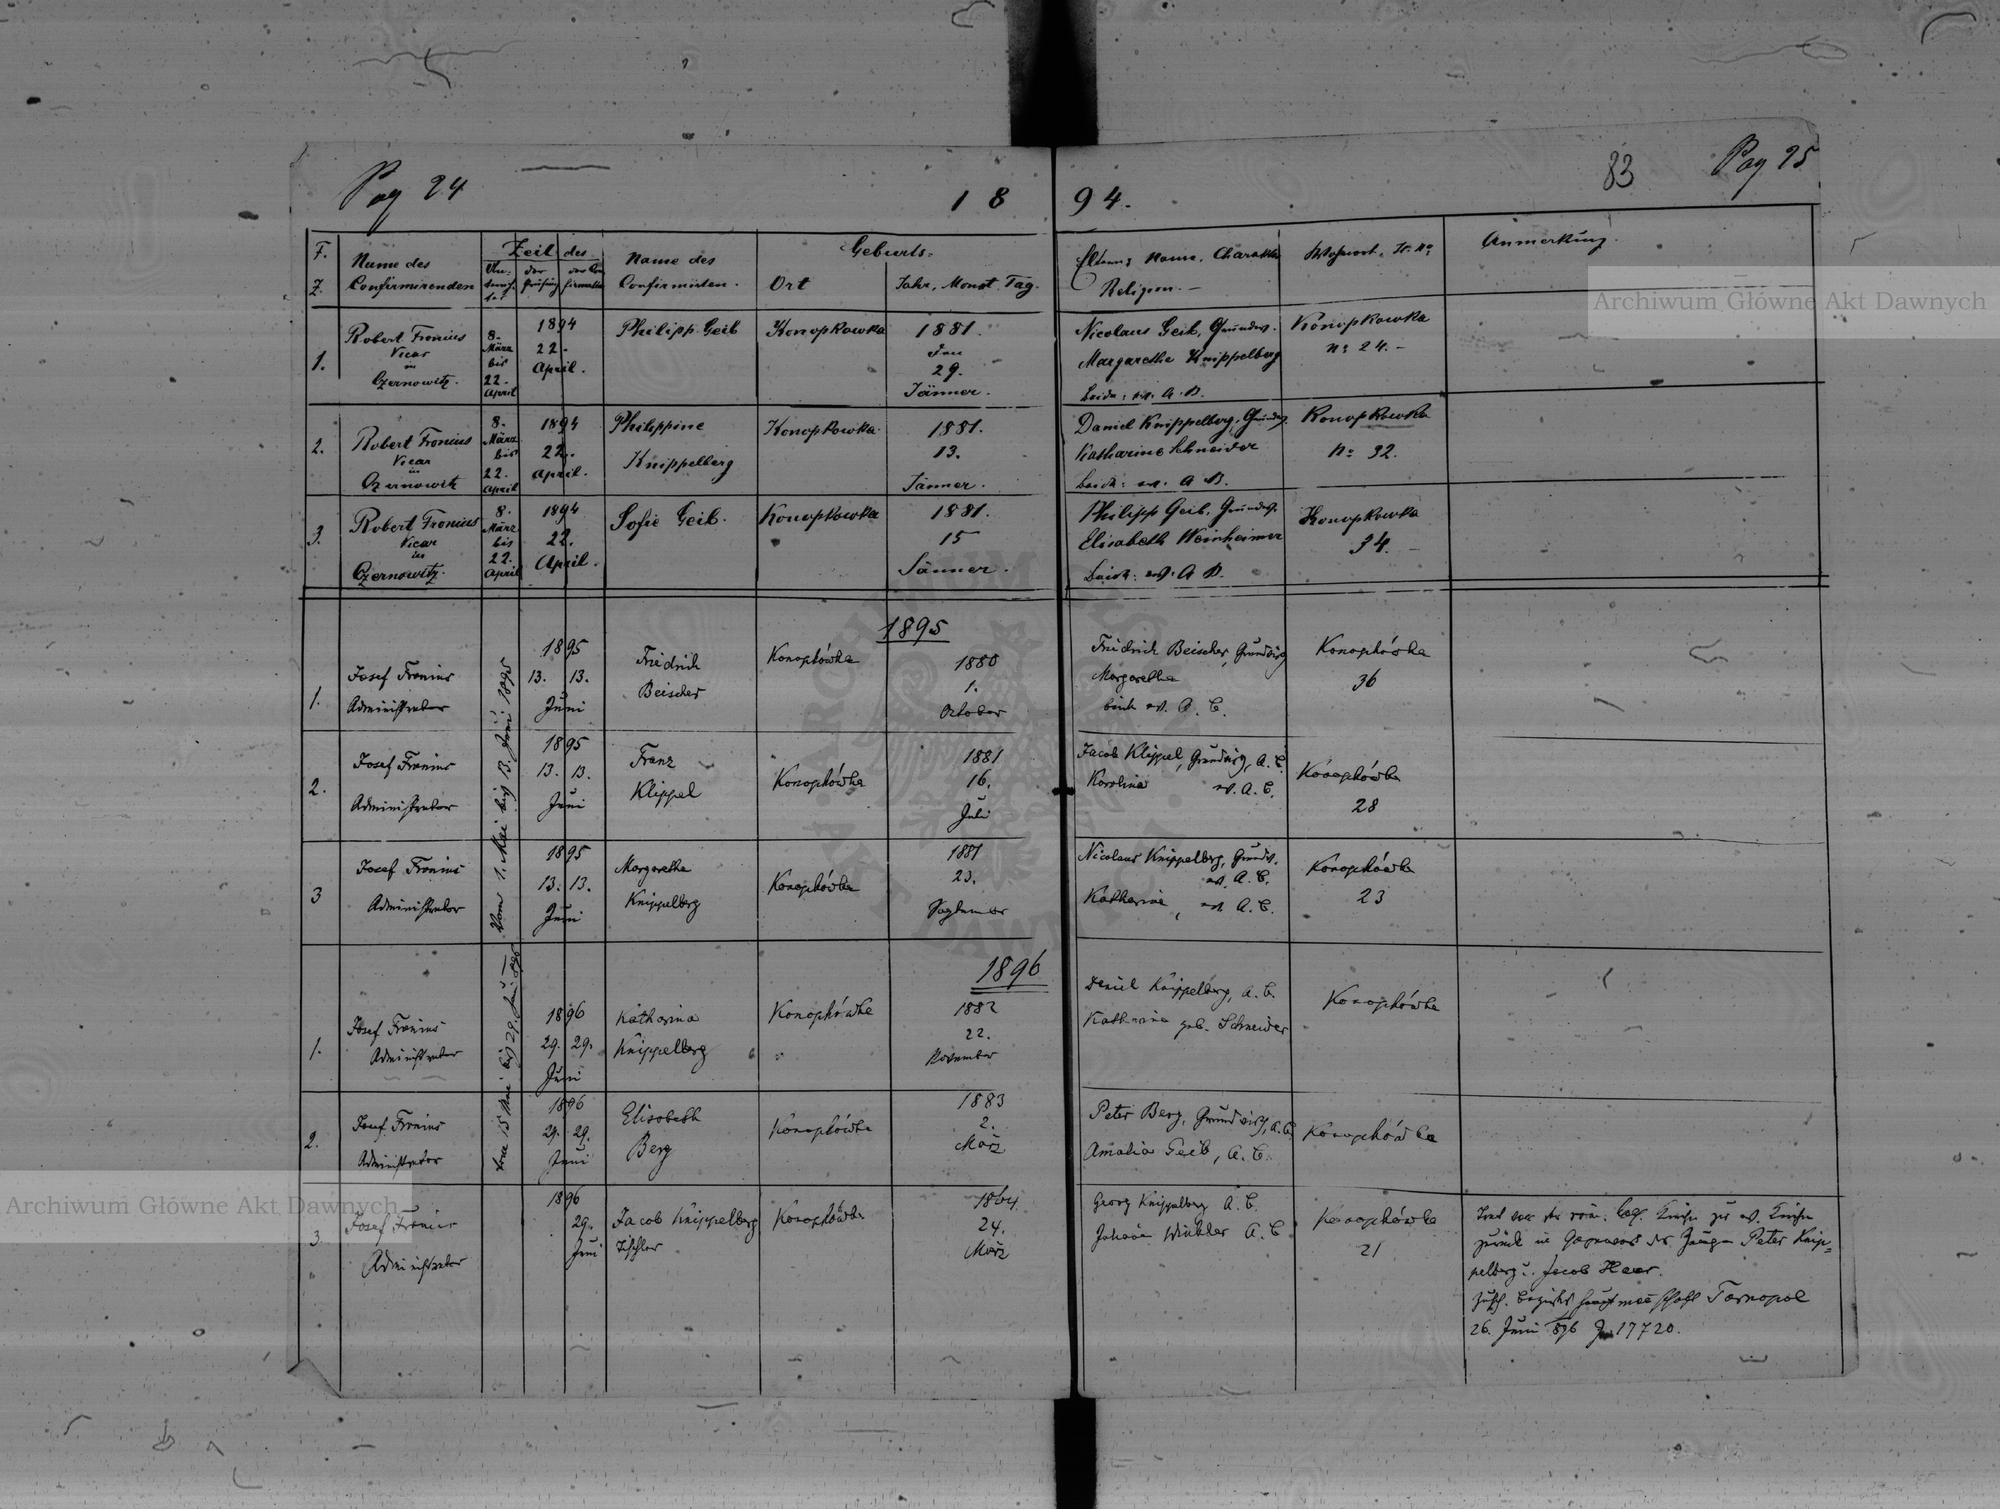 Pag 24
83
Pag 25
18 94.
F. Z.
Name des Confirmirenden
Zeit des
der Prüfung
Name des Confirmirten.
Geburts-
Ort
Jahr, Monat, Tag.
Eltern, Name, Charakter
Religion.
Anmerkung.
1.
Robert Fronius
Vicar
in
Czernowitz.
8.
März
bis
22.
April
1894
22.
April.
Philipp Geib
Konopkowka
1881
den
29.
Jänner.
Nicolaus Geib, Grundw.
Margarethe Knippelberg
Konopkowka
No 24.
2.
Robert Fronius
Vicar
in
Czernowitz
8.
März
bis
22.
April
1894
22.
April.
Philippine
Knippelberg
Konopkowka
1881.
13.
Jänner.
Daniel Knippelberg, Grundw.
Katharine Schneider
Konopkowka
No 32.
3.
Robert Fronius
Vicar
in
Czernowitz.
8.
März
bis
22.
April
1894
22.
April.
Sofie Geib.
Konopkowka
1881.
15
Jänner.
Philipp Geib, Grundw.
Elisabeth Weinheimer
Konopkowka
34.
1895
1.
Josef Fronius
Administrator
Vom 1. Mai bis 13. Juni 1895
1895
13. 13.
Juni
Friedrich
Beischer
Konopkówka
1880
1.
October
Friedrich Beischer, Grundwirth
Margaretha
beide ev. A. C.
Konopkówka
36
2.
Josef Fronius
Administrator
1895
13. 13.
Juni
Franz
Klippel
Konopkówka
1881
16.
Juli
Jacob Klippel, Grundwirth, A. C.
Karolina ev. A. C.
Konopkówka
28
3
Josef Fronius
Administrator
1895
13. 13.
Juni
Margaretha
Knippelberg
Konopkówka
1881
23.
September
Nicolaus Knippelberg, Grundw.
ev. A. C.
Katharina, ev. A. C.
Konopkówka
23
1896
1.
Josef Fronius
Administrator
vom 15 Mai bis 29. Juni 1896
1896
29. 29.
Juni
Katharina
Knippelberg
Konopkówka
1882
22.
November
Daniel Knippelberg, A. C.
Katharina geb. Schneider
Konopkówka
2.
Josef Fronius
Administrator
1896
29. 29.
Juni
Elisabeth
Berg
Konopkówka
1883
2.
März
Peter Berg, Grundwirth, A. C.
Amalia Geib, A. C.
Konopkówka
3.
Josef Fronius
Administrator
1896
29.
Juni
Jacob Knippelberg
Tischler
Konopkówka
1864
24.
März
Georg Knippelberg A. C.
Johanna Winkler A. C.
Konopkówka
21
Trat von der röm. kath. Kirche zur ev. Kirche
zurück in Gegenwart der Zeugen Peter Knip=
pelberg u. Jacob Haar.
Zusch. Bezirkshauptmannschaft Tarnopol
26. Juni 896 17720.
Archiwum Główne Akt Dawnych
Archiwum Główne Akt Dawnych